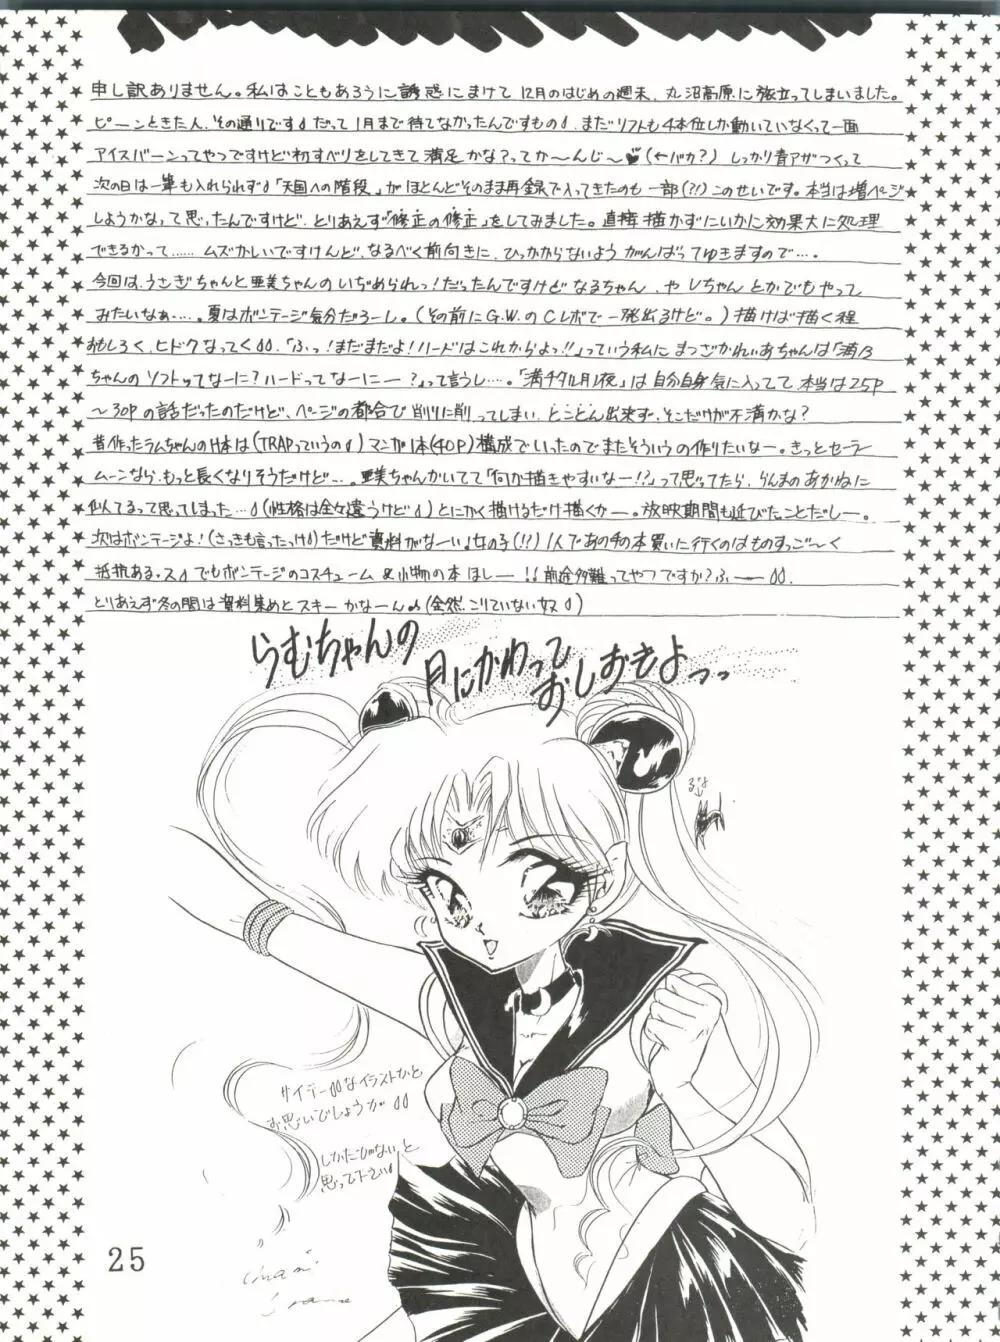 申し訳ありません。私はこともあろうに誘惑にまけて12月のはじめの週末、丸沼高原に旅立ってしまいました。
ピーンときた人、その通りですだって1月まで待てなかったんですもの、まだリフトも4本位しか動いていなくって一面
アイスバーンってやつですけど初すべりをしてきて満足かな?ってか〜んじ〜(←バカ?)しっかり青アザがつくって
次の日は一筆も入れられず「天国への階段」がほとんどそのまま再録で入ってきたのも一部(?!)このせいです。本当は増ページ
しようかなって思ったんですけど、とりあえず「修正の修正」をしてみました。直接描かずにいかに効果大に処理
できるかって……ムズかしいですけんど、なるべく前向きに、ひっかからないようがんばってゆきますので…。
今回は、うさぎちゃんと亜美ちゃんのいぢめられっ!だったんですけどなるちゃん、やVちゃんとかでもやって
みたいなぁ…。夏はボンテージ気分だろーし。(その前にG.W.のCレボで一発出るけど。)描けば描く程
おもしろく、ヒドクなってく、「ふっ!まだまだよ!ハードはこれからよっ!!」っていう私にまつざかれいあちゃんは「満乃
ちゃんのソフトってなーに?ハードってなーにー?」って言うし…。「満チタル月夜」は自分自身気に入ってて、本当は25P
〜30Pの話だったのだけど、ページの都合で削りに削ってしまい、とことん出来ず、そこだけが不満かな?
昔作ったラムちゃんのH本は(TRAPっていうの)マンガ1本(40P)構成でいったのでまたそういうの作りたいなー。きっとセーラー
ムーンなら、もっと長くなりそうだけど…。亜美ちゃんかいてて「何か描きやすいなー!?」って思ってたら、らんまのあかねに
似てるって思ってしまった…(性格は全々違うけど)とにかく描けるだけ描くかー。放映期間も延びたことだしー。
次はボンテージよ!(さっきも言ったっけ)だけど資料がなーい!女の子(!?)1人であの手の本買いに行くのはものすっご〜く
抵抗ある。スでもボンテージのコスチューム&小物の本ほしー!!前途多難ってやつですか?ふー。
とりあえず冬の間は資料集めとスキーかなーん♪(全然、こりていない奴)
らむちゃんの
月にかわって
おしおきよっっ
るなよ
↓
サイテーなイラストかと
お思いでしょうが
しかたがないと
思って下さい
25